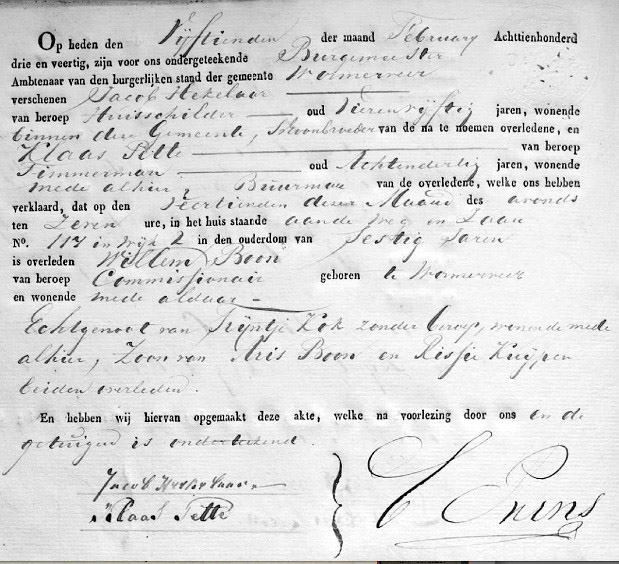 Op heden den Vijftienden der maand February Achttienhonderd
drie en veertig, zijn voor ons ondergeteekende Burgemeester
Ambtenaar van den burgerlijken stand der gemeente Wormerveer
verschenen Jacob Hekelaar
van beroep Huisschilder oud Vierenvijftig jaren, wonende
binnen deze Gemeente, Schoonbroeder van de na te noemen overledene, en
Klaas Tette van beroep
Timmerman oud Achtendertig jaren, wonende
mede alhier, Buurman van de overledene, welke ons hebben
verklaard, dat op den Veertienden dezer Maand des avonds
ten Zeven ure, in het huis staande aan de weg en Zaan
No. 117 in wijk 2 in den ouderdom van Sestig Jaren
is overleden Willem Boon
van beroep Commissionair geboren te Wormerveer
en wonende mede aldaar
Echtgenoot van Trijntje Kok zonder beroep, wonende mede
alhier, Zoon van Aris Boon en
beiden overleden.
En hebben wij hiervan opgemaakt deze akte, welke na voorlezing door ons en de
getuigen is onderteekend.
Jacob Hekelaar
Klaas Tette